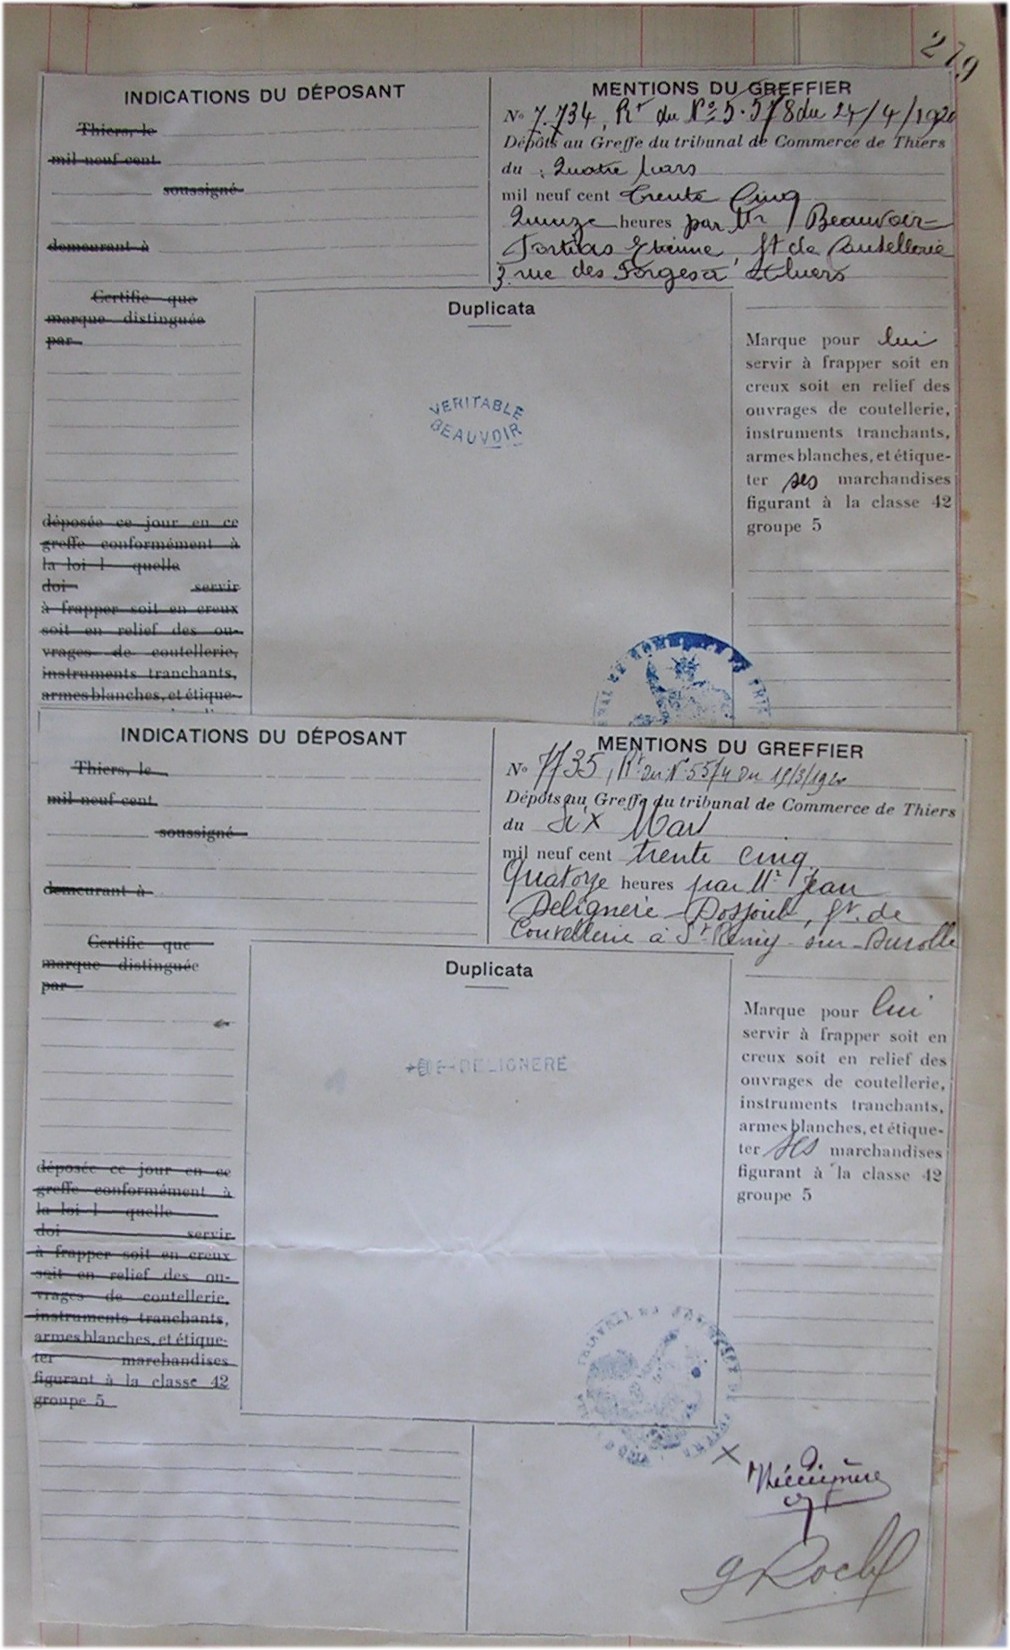 279
INDICATIONS DU DÉPOSANT
Thiers, le
mil neuf cent
soussigné
demeurant à
Certifie que
marque distinguée
par
déposée ce jour en ce
greffe conformément à
la loi l quelle
doi servir
à frapper soit en creux
soit en relief des ou-
vrages de coutellerie,
instruments tranchants,
armes blanches, et étique-
MENTIONS DU GREFFIER
No 7.734, Rt du No 5.578 du 27/4/1920
Dépôts au Greffe du tribunal de Commerce de Thiers
du Quatre Mars
mil neuf cent trente Cinq
Quinze heures par Mr Beauvoir-
Etienne, ft de Coutellerie
3 rue des Forges à Thiers
Duplicata
VERITABLE
BEAUVOIR
Marque pour lui
servir à frapper soit en
creux soit en relief des
ouvrages de coutellerie,
instruments tranchants,
armes blanches, et étique-
ter ses marchandises
figurant à la classe 42
groupe 5
INDICATIONS DU DÉPOSANT
Thiers, le
mil neuf cent
soussigné
demeurant à
Certifie que
marque distinguée
par
déposée ce jour en ce
greffe conformément à
la loi l quelle
doi servir
à frapper soit en creux
soit en relief des ou-
vrages de coutellerie,
instruments tranchants,
armes blanches, et étique-
ter marchandises
figurant à la classe 42
groupe 5
MENTIONS DU GREFFIER
No 7735, Rt du No 5574 du 19/3/1920
Dépôts au Greffe du tribunal de Commerce de Thiers
du Six Mars
mil neuf cent trente cinq
Quatorze heures par Mr Jean
Delignère, ft. de
Coutellerie à St Rémy-sur-Durolle
Duplicata
DELIGNERE
Marque pour lui
servir à frapper soit en
creux soit en relief des
ouvrages de coutellerie,
instruments tranchants,
armes blanches, et étique-
ter ses marchandises
figurant à la classe 42
groupe 5